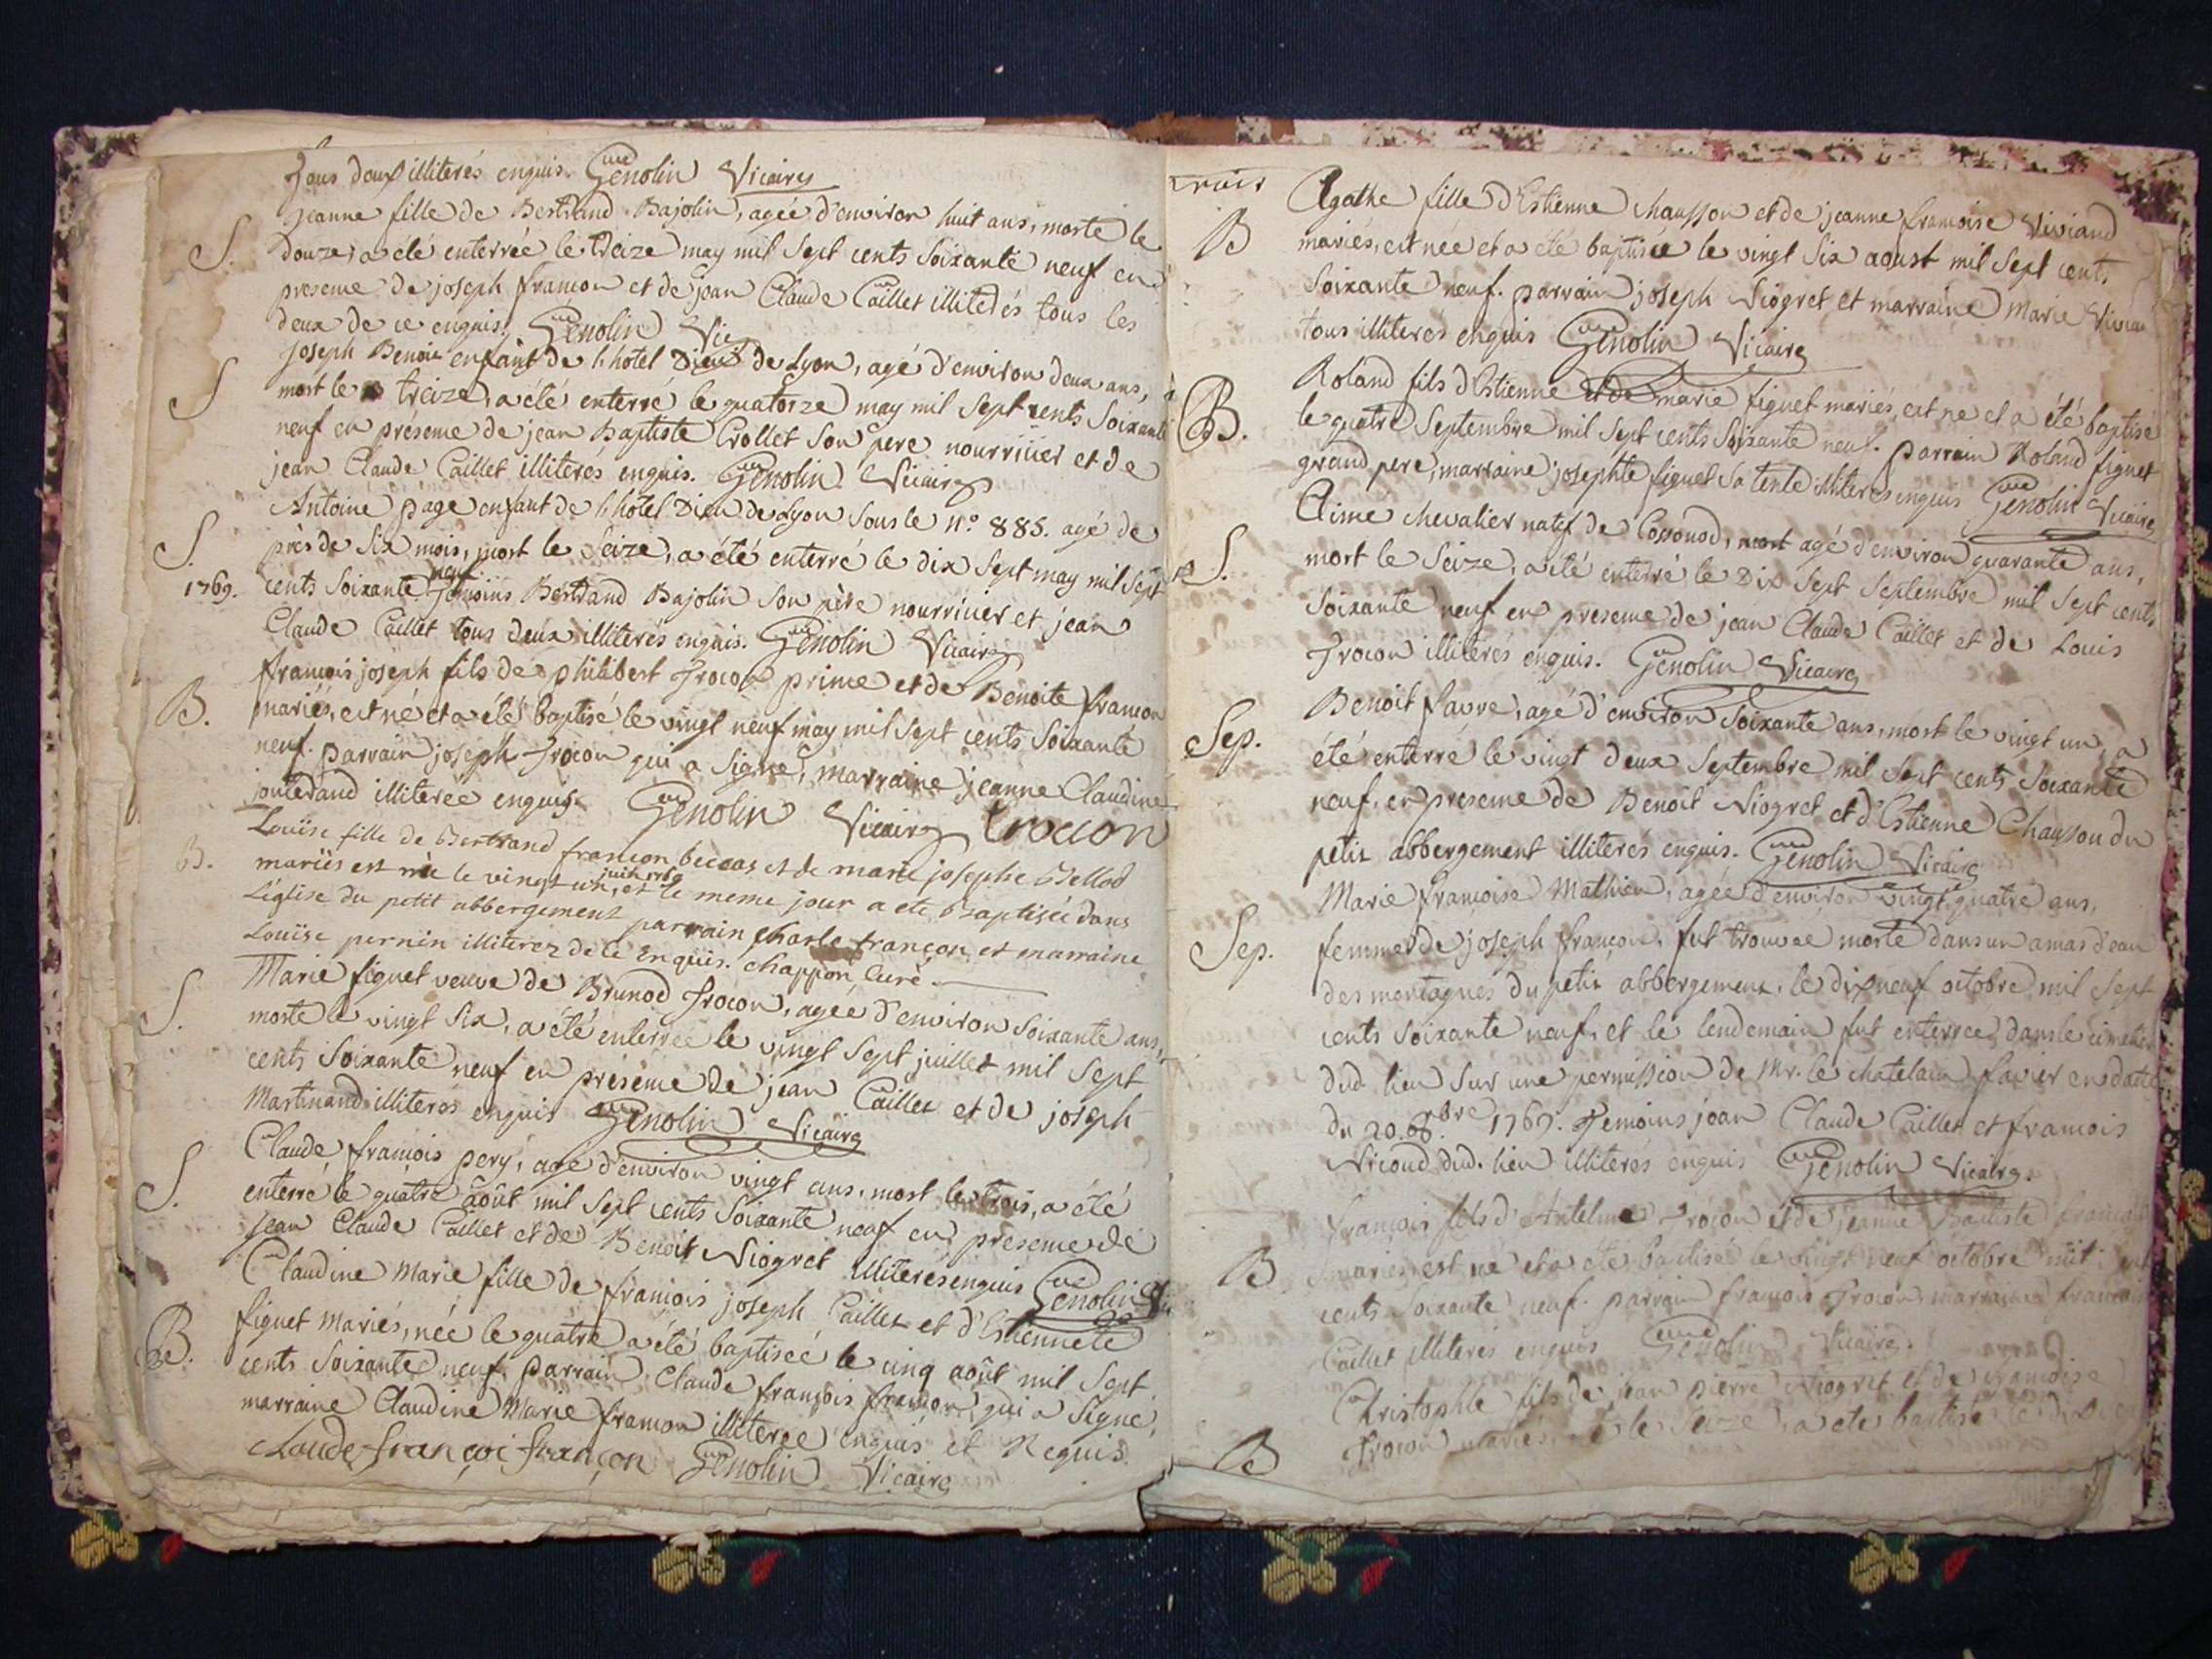 Tous deux illiterés enquis. Genolin Vicaire
S. Jeanne fille de Bertrand Bajolin, agée d'environ huit ans, morte le
douze, a été enterrée le treize may mil sept cents soixante neuf en
presence de joseph françon et de jean Claude Caillet illiterés tous les
deux de ce enquis. Genolin Vic
S Joseph Benoit enfant de l'hotel Dieu de Lyon, agé d'environ deux ans,
mort le treize, a été enterré le quatorze may mil sept cents soixante
neuf en présence de jean Baptiste Crollet son pere nourricier et de
jean Claude Caillet illiterés enquis. Genolin Vicaire
S. Antoine page enfant de l'hotel Dieu de Lyon sous le N.º 885. agé de
près de six mois, mort le seize, a été enterré le dix sept may mil sept
1769. cents soixante neuf témoins Bertrand Bajolin son père nourricier et jean
Claude Caillet tous deux illiterés enquis. Genolin Vicaire
B. françois joseph fils de philibert Trocon prince et de Benoite françon
mariés, est né et a été baptisé le vingt neuf may mil sept cents soixante
neuf. parrain joseph Trocon qui a signé, marraine jeanne Claudine
jouterand illiterée enquise Genolin Vicaire trocon
B. Louïse fille de Bertrand françon beccas et de marie josephe Bellod
mariés est née le vingt un juin 1769 et le meme jour a ete Baptisée dans
L'église du petit abbergement parrain Charle françon et marraine
Louïse pernin illiterez de ce enquis. Chappon Curé
S. Marie figuet veuve de Brunod Trocon, agée d'environ soixante ans,
morte le vingt six, a été enterrée le vingt sept juillet mil sept
cents soixante neuf en présence de jean Caillet et de joseph
Martinand illiterés enquis Genolin Vicaire
S. Claude françois pery, agé d'environ vingt ans, mort le trois, a été
enterré le quatre août mil sept cents soixante neuf en presence de
jean Claude Caillet et de Benoit Niogret illiterés enquis Genolin
B. Claudine Marie fille de françois joseph Caillet et d'Estiennete
figuet mariés, née le quatre a été baptisée le cinq août mil sept
cents soixante neuf. parrain Claude françois françon, qui a signé,
marraine Claudine Marie françon illiterée enquis et Requis.
Claude françoi françon Genolin Vicaire
B Agathe fille d'Estienne chausson et de jeanne francoise Viviand
mariés, est née et a été baptisée le vingt six aoust mil sept cents
soixante neuf. parrain joseph Niogret et marraine Marie
tous illiterés enquis Genolin Vicaire
B. Roland fils d'Estienne et de marie figuet mariés, est né et a été baptisé
le quatre Septembre mil sept cents soixante neuf. parrain Roland figuet
grand pere, marraine josephte figuet sa tente illiterés enquis Genolin Vicaire
S. Aimé chevalier natif de Cossonod, agé d'environ quarante ans,
mort le seize, a été enterré le Dix sept Septembre mil sept cents
soixante neuf en presence de jean Claude Caillet et de Louis
Trocon illiterés enquis. Genolin Vicaire
Sep. Benoit favre, agé d'environ soixante ans, mort le vingt un, a
été enterré le vingt deux Septembre mil sept cents soixante
neuf, en presence de Benoit Niogret et d'Estienne Chausson du
petit abbergement illiterés enquis. Genolin Vicaire
Sep. Marie françoise Mathieu, agée d'environ vingt quatre ans,
femme de joseph françon, fut trouvée morte dans un amas d'eau
des montagnes du petit abbergement, le dix neuf octobre mil sept
cents soixante neuf, et le lendemain fut enterree dans le cimetier
dud. lieu sur une permission de Mr. le chatelain favier en datte
du 20. 8.bre 1769. Temoins jean Claude Caillet et francois
Nicoud dud. lieu illiterés enquis Genolin Vicaire.
B françois fils d'Antelme Trocon et de jeanne Baptiste
mariés, est né et a été baptisé le vingt neuf octobre mil sept
cents soixante neuf. parrain françois Trocon, marraine
Caillet illiterés enquis Genolin Vicaire.
B Christophle fils de jean pierre Niogret et de françoise
Trocon mariés, né le seize, a ete baptisé le